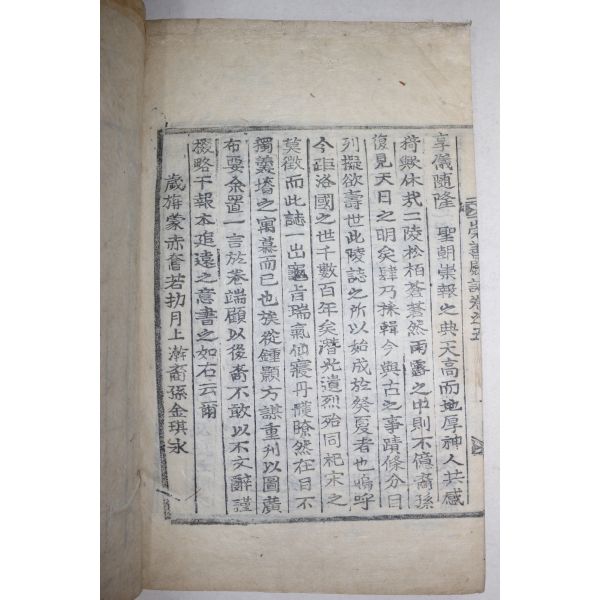 享儀隨隆 聖朝崇報之典天高而地厚神人共感
猗歟休哉二陵松栢蒼蒼然雨露之中則不億裔孫
復見天日之明矣肆乃採輯今與古之事蹟條分目
列擬欲壽世此陵誌之所以始成於癸夏者也嗚呼
今距洛國之世千數百年矣潛光遺烈殆同杞宋之
莫徵而此誌一出 肯瑞氣仙寢丹 瞭然在目不
獨羹墻之寓慕而已也族從鍾顥方謀重刊以圖廣
布要余置一言於卷端顧以後裔不敢以不文辭謹
檓略干報本追遠之意書之如右云爾
歲旃蒙赤奮若 月上澣裔孫金琪泳
崇善殿誌卷之五